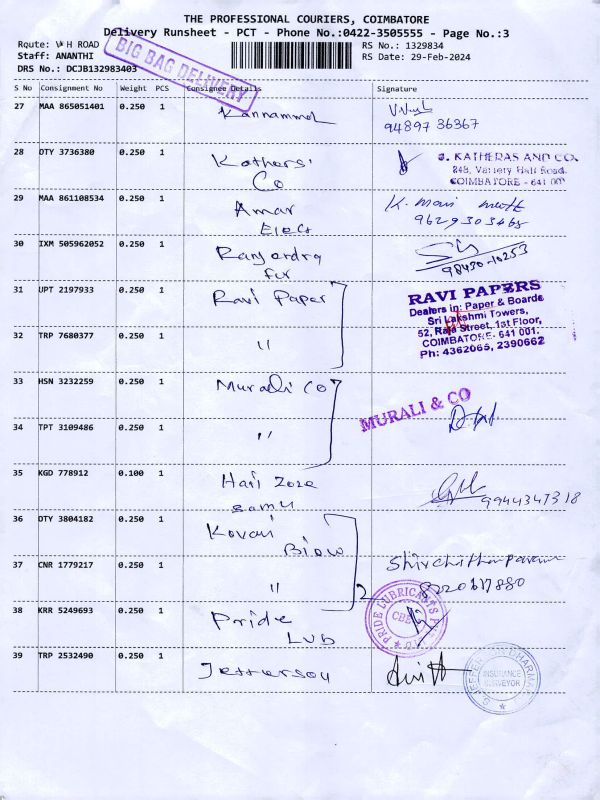 THE PROFESSIONAL COURIERS, COIMBATORE
Delivery Runsheet - PCT - Phone No.:0422-3505555 - Page No.:3
Route: V H ROAD
RS No.: 1329834
Staff: ANANTHI
RS Date: 29-Feb-2024
DRS No.: DCJB132983403
BIG BAG DELIVERY
S No Consignment No Weight PCS Consignee Details Signature
27 MAA 865051401 0.250 1 Kannammal
9489736367
28 DTY 3736380 0.250 1 Kathers' Co
J. KATHERAS AND CO.
848, Variety Hall Road,
COIMBATORE - 641 001
29 MAA 861108534 0.250 1 Amar Elect
K. Mari
9629303465
30 IXM 505962052 0.250 1 Rajendra
98430-10253
31 UPT 2197933 0.250 1 Ravi Paper
RAVI PAPERS
Dealers in: Paper & Boards
Sri Lakshmi Towers,
52, Raja Street, 1st Floor,
COIMBATORE- 641 001.
Ph: 4362065, 2390662
32 TRP 7680377 0.250 1 "
33 HSN 3232259 0.250 1 Murali Co
MURALI & CO
34 TPT 3109486 0.250 1 "
35 KGD 778912 0.100 1 Hari Zoze
9944347318
36 DTY 3804182 0.250 1 Kovai
37 CNR 1779217 0.250 1 "
2
8220617880
38 KRR 5249693 0.250 1 Pride Lub
PRIDE LUBRICANTS
CBE
39 TRP 2532490 0.250 1 Jefferson
INSURANCE
SURVEYOR